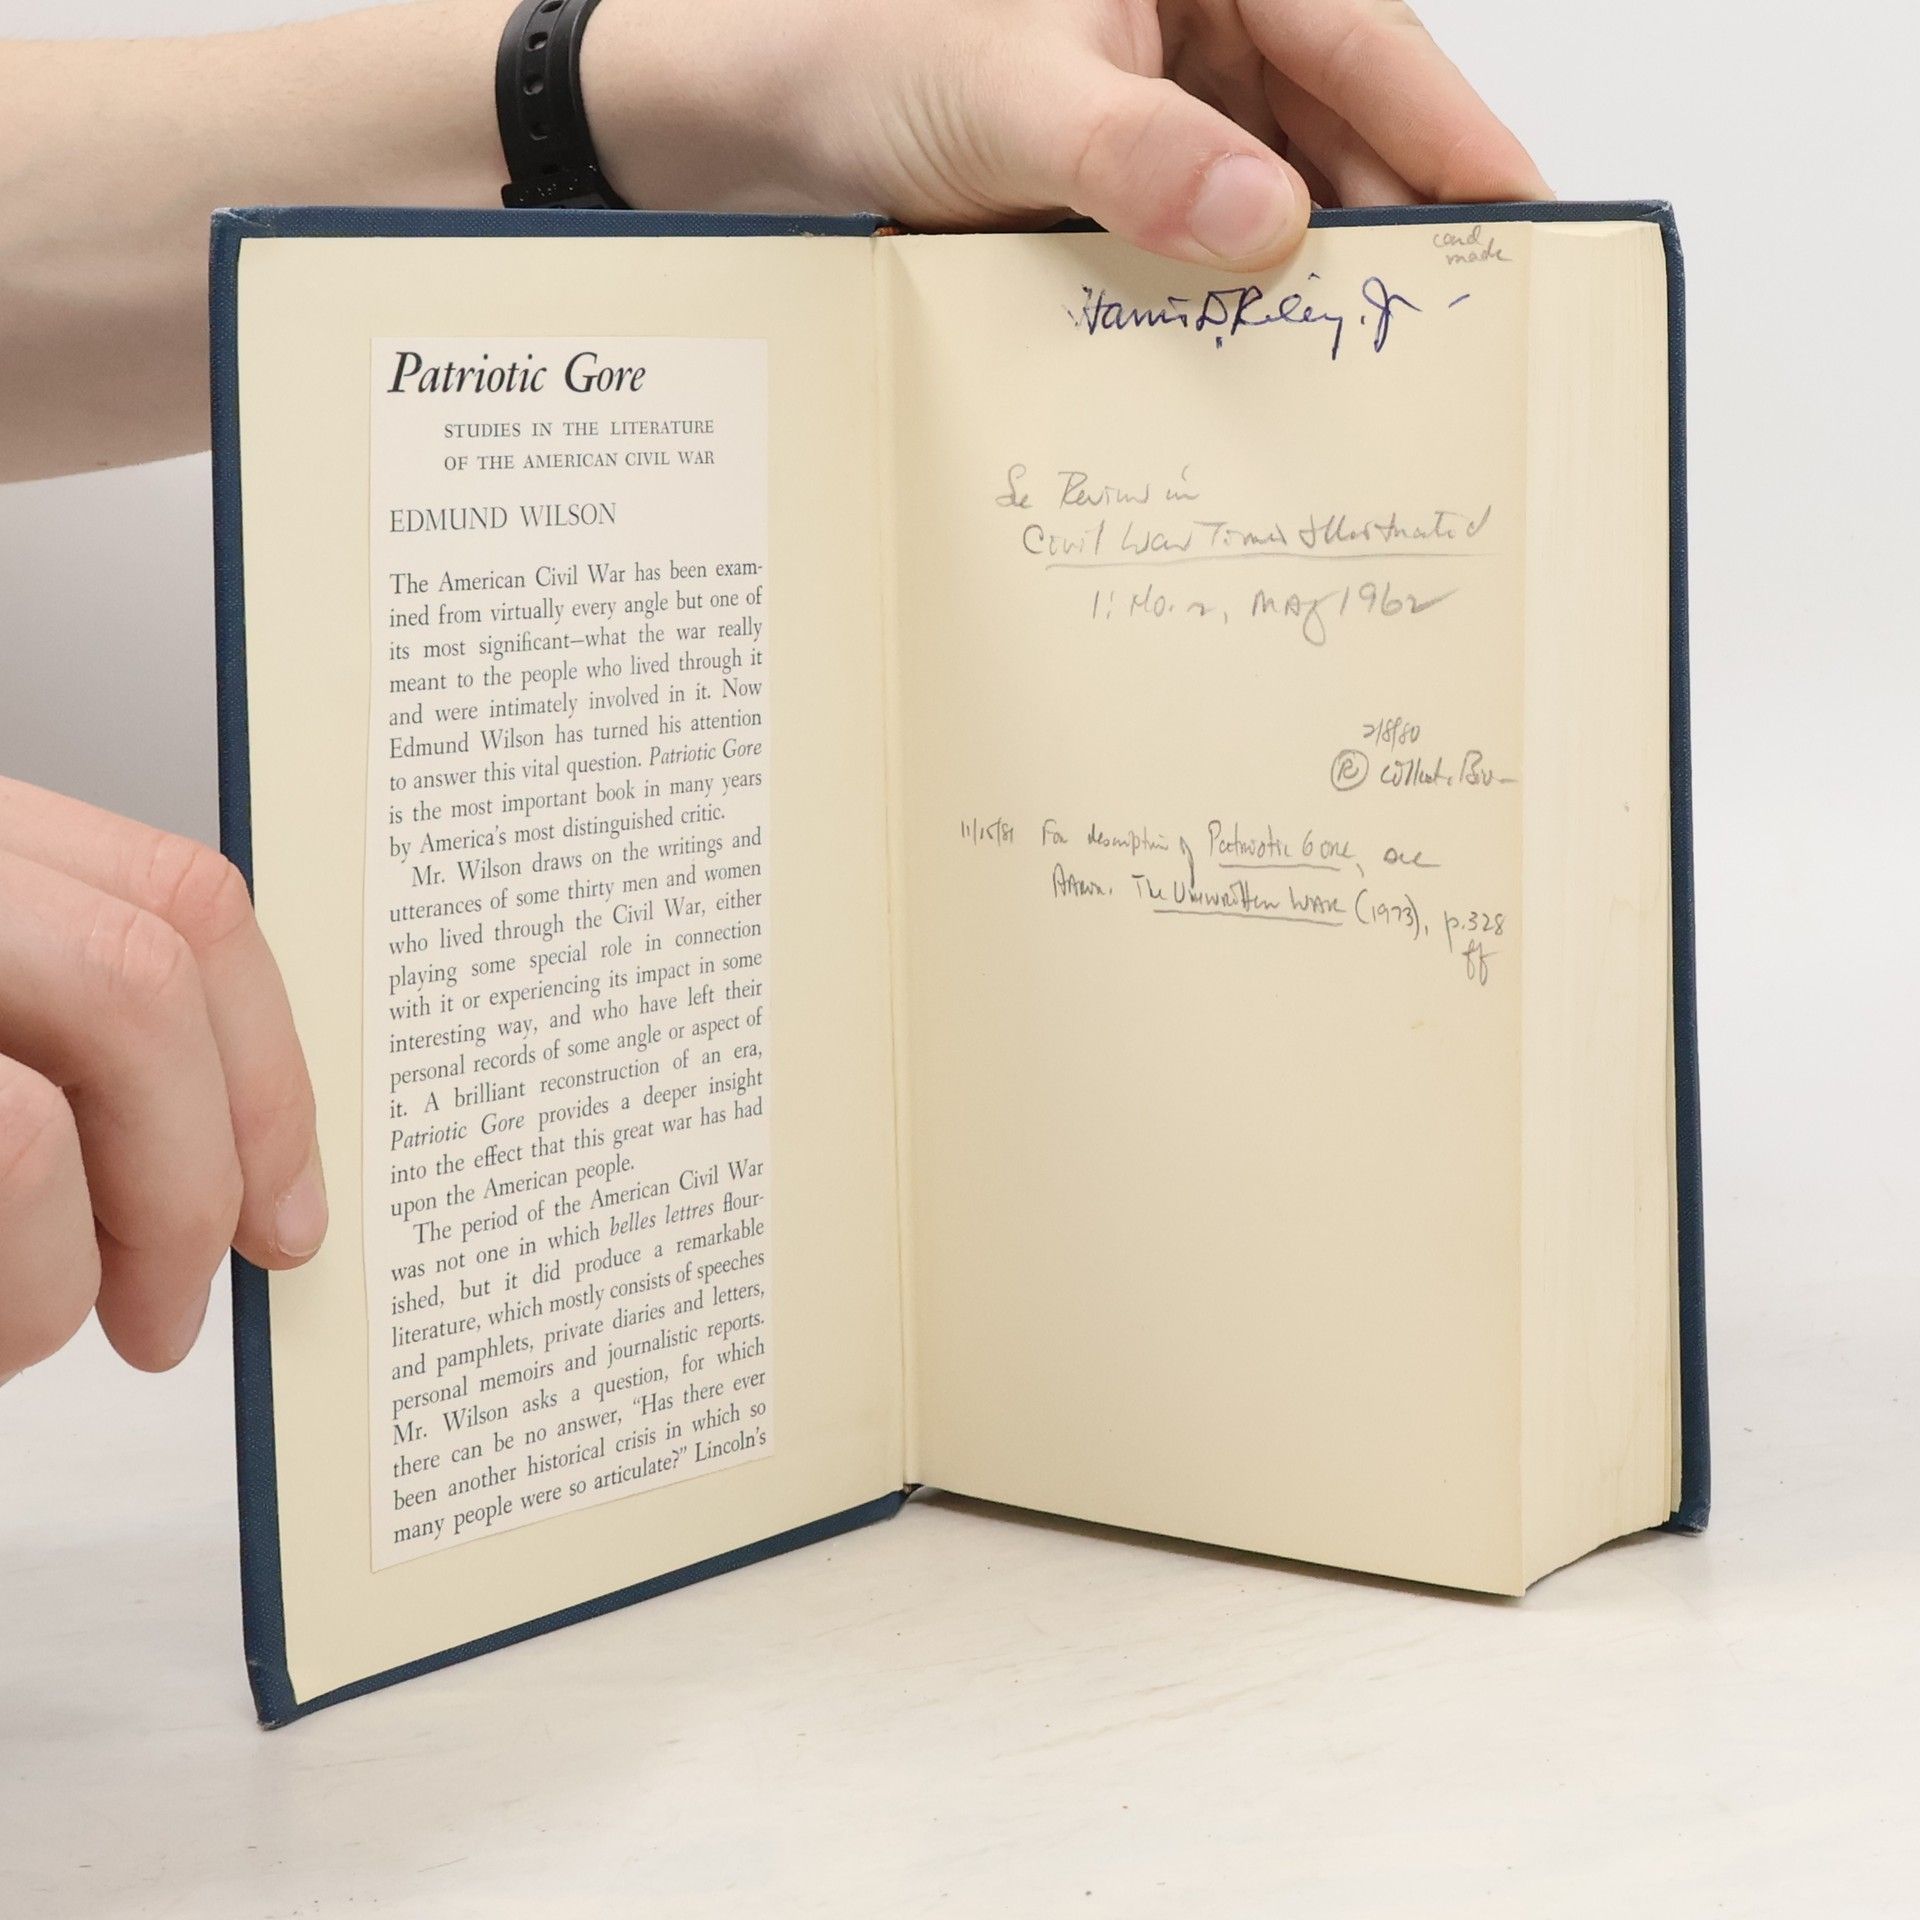 Patriotic Gore
STUDIES IN THE LITERATURE
OF THE AMERICAN CIVIL WAR
EDMUND WILSON
The American Civil War has been exam-
ined from virtually every angle but one of
its most significant—what the war really
meant to the people who lived through it
and were intimately involved in it. Now
Edmund Wilson has turned his attention
to answer this vital question. Patriotic Gore
is the most important book in many years
by America's most distinguished critic.
Mr. Wilson draws on the writings and
utterances of some thirty men and women
who lived through the Civil War, either
playing some special role in connection
with it or experiencing its impact in some
interesting way, and who have left their
personal records of some angle or aspect of
it. A brilliant reconstruction of an era,
Patriotic Gore provides a deeper insight
into the effect that this great war has had
upon the American people.
The period of the American Civil War
was not one in which belles lettres flour-
ished, but it did produce a remarkable
literature, which mostly consists of speeches
and pamphlets, private diaries and letters,
personal memoirs and journalistic reports.
Mr. Wilson asks a question, for which
there can be no answer, “Has there ever
been another historical crisis in which so
many people were so articulate?” Lincoln's
card
made
Harris D. Riley, Jr
See Review in
Civil War Times Illustrated
1: No. 2, May 1962
2/8/80
R
11/15/81 For description of Patriotic Gore, see
Aaron. The Unwritten War (1973), p. 328
ff